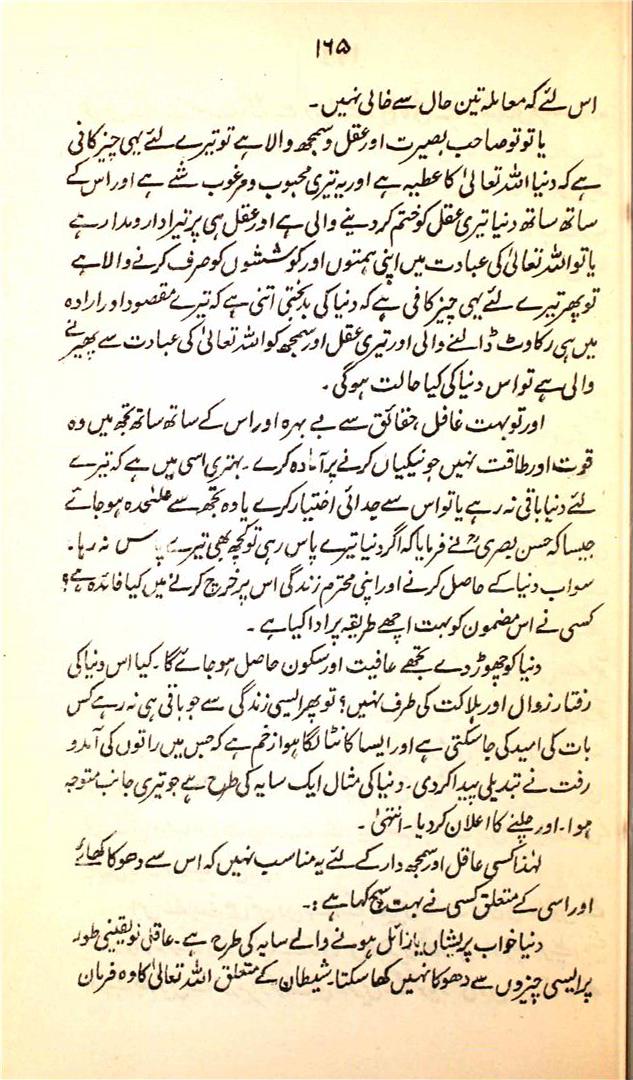 ۱۶۵
اس لئے کہ معاملہ تین حال سے خالی نہیں۔
یا تو تو صاحب بصیرت اور عقل و سمجھ والا ہے تو تیرے لئے یہی چیز کافی
ہے کہ دنیا اللہ تعالیٰ کا عطیہ ہے اور یہ تیری محبوب و مرغوب شئے ہے اور اس کے
ساتھ ساتھ دنیا تیری عقل کو ختم کر دینے والی ہے اور عقل ہی پر تیرا دارومدار ہے
یا تو اللہ تعالیٰ کی عبادت میں اپنی ہمتوں اور کوششوں کو صرف کرنے والا ہے
تو پھر تیرے لئے یہی چیز کافی ہے کہ دنیا کی بدبختی اتنی ہے کہ تیرے مقصود اور ارادہ
میں ہی رکاوٹ ڈالنے والی اور تیری عقل اور سمجھ کو اللہ تعالیٰ کی عبادت سے پھیرنے
والی ہے تو اس دنیا کی کیا حالت ہوگی۔
اور تو بہت غافل، حقائق سے بے بہرہ اور اس کے ساتھ ساتھ تجھ میں وہ
قوت اور طاقت نہیں جو نیکیاں کرنے پر آمادہ کرے۔ بہتری اسی میں ہے کہ تیرے
لئے دنیا باقی نہ رہے یا تو اس سے جدائی اختیار کرے یا وہ تجھ سے علٰیحدہ ہو جائے
جیسا کہ حسن بصریؒ نے فرمایا کہ اگر دنیا تیرے پاس رہی تو کچھ بھی تیرے پاس نہ رہا۔
سو اب دنیا کے حاصل کرنے اور اپنی محترم زندگی اس پر خرچ کرنے میں کیا فائدہ ہے؟
کسی نے اس مضمون کو بہت اچھے طریقہ پر ادا کیا ہے۔
دنیا کو چھوڑ دے تجھے عافیت اور سکون حاصل ہو جائے گا۔ کیا اس دنیا کی
رفتار زوال اور ہلاکت کی طرف نہیں؟ تو پھر ایسی زندگی سے جو باقی ہی نہ رہے کس
بات کی امید کی جا سکتی ہے اور ایسا کانٹا لگا ہوا زخم ہے کہ جس میں راتوں کی آمد و
رفت نے تبدیلی پیدا کر دی۔ دنیا کی مثال ایک سایہ کی طرح ہے جو تیری جانب متوجہ
ہوا۔ اور چلنے کا اعلان کر دیا۔ انتہیٰ۔
لہٰذا کسی عاقل اور سمجھ دار کے لئے یہ مناسب نہیں کہ اس سے دھوکا کھائے
اور اسی کے متعلق کسی نے بہت سچ کہا ہے:۔
دنیا خواب پریشاں یا زائل ہونے والے سایہ کی طرح ہے۔ عاقل تو یقینی طور
پر ایسی چیزوں سے دھوکا نہیں کھا سکتا۔ شیطان کے متعلق اللہ تعالیٰ کا وہ فرمان